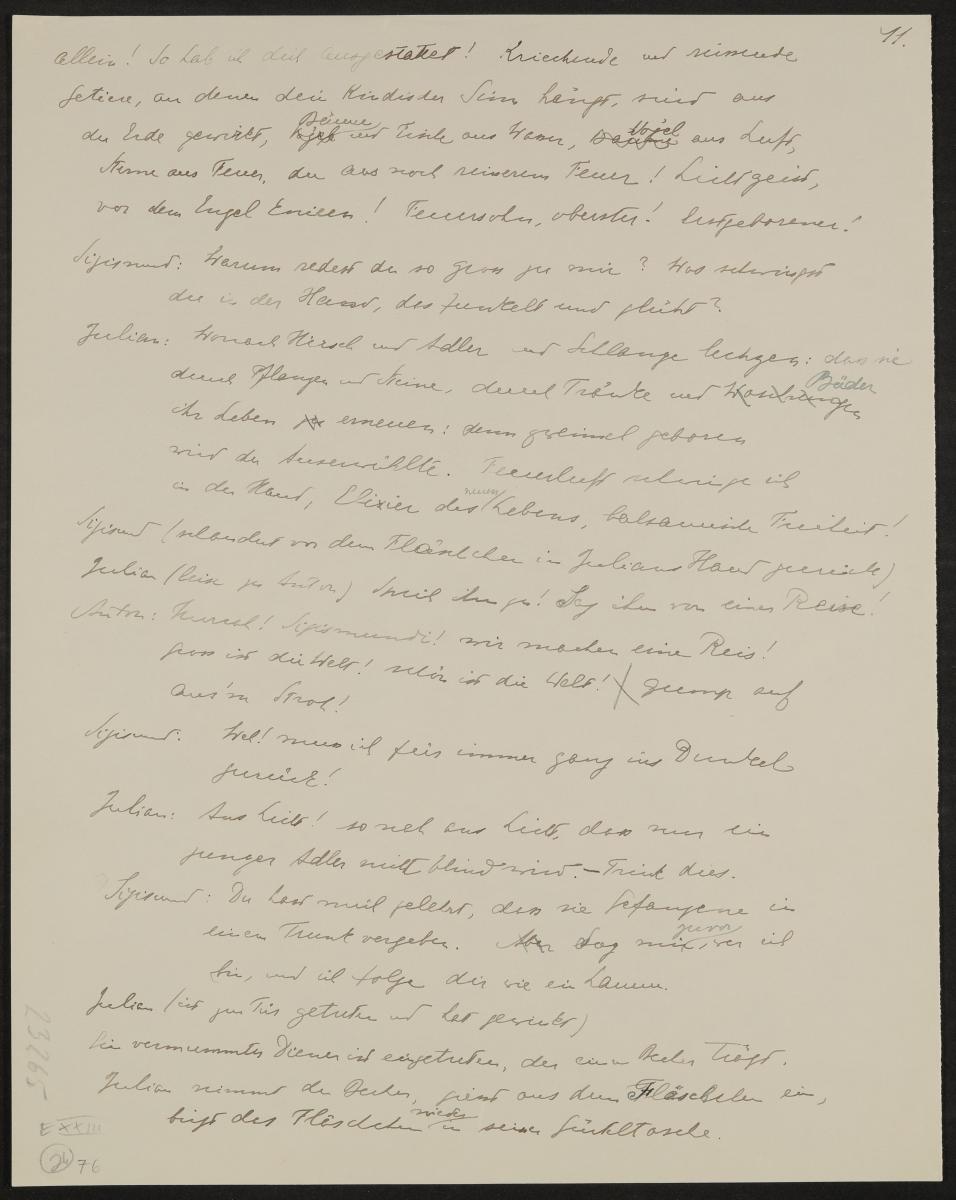 11.
allein! So hab ich dich ausgestattet! Kriechende und
Getiere, an denen dein kindischer Sinn hängt, sind aus
der Erde gewirkt, Bäume und Fische aus Wasser, Vögel aus Luft,
Sterne aus Feuer, du aus noch reinerem Feuer! Lichtgeist,
vor dem Engel knieen! Feuersohn, oberster! Erstgeborener!
Sigismund: Warum redest du so gross zu mir? Was schwingst
du in der Hand, das funkelt und glüht?
Julian: Wonach Hirsch und Adler und Schlange lechzen: dass sie
durch Pflanzen und Steine, durch Tränke und Waschungen Bäder
ihr Leben zu erneuen: denn zweimal geboren
wird der Auserwählte. Feuerluft schwinge ich
in der Hand, Elixier des neuen Lebens, balsamische Freiheit!
Sigismund (schaudert vor dem Fläschchen in Julians Hand zurück)
Julian (leise zu Anton) Sprich ihm zu! Sag ihm von einer Reise!
Anton: Hurrah! Sigismundi! wir machen eine Reis!
gross ist die Welt! schön ist die Welt! gump auf
aus'm Stroh!
Sigismund: Weh! muss ich für immer ganz ins Dunkel
zurück!
Julian: Ans Licht! so nah ans Licht, dass nur ein
junger Adler nicht blind wird. – Trink dies.
Sigismund: Du hast mich gelehrt, dass sie Gefangene in
einem Trunk vergeben. Aber Sag mir zuvor, wer ich
bin, und ich folge dir wie ein Lamm.
Julian (ist zur Tür getreten und hat gewinkt)
Ein vermummter Diener ist eingetreten, der einen Becher trägt.
Julian nimmt den Becher, giesst aus dem Fläschchen ein,
birgt das Fläschchen wieder in seiner Gürteltasche.
23265
E XXIII
24 76